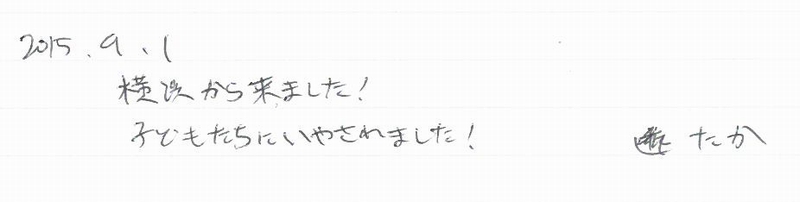 2015.9.1
横浜から来ました!
子どもたちにいやされました!
たか